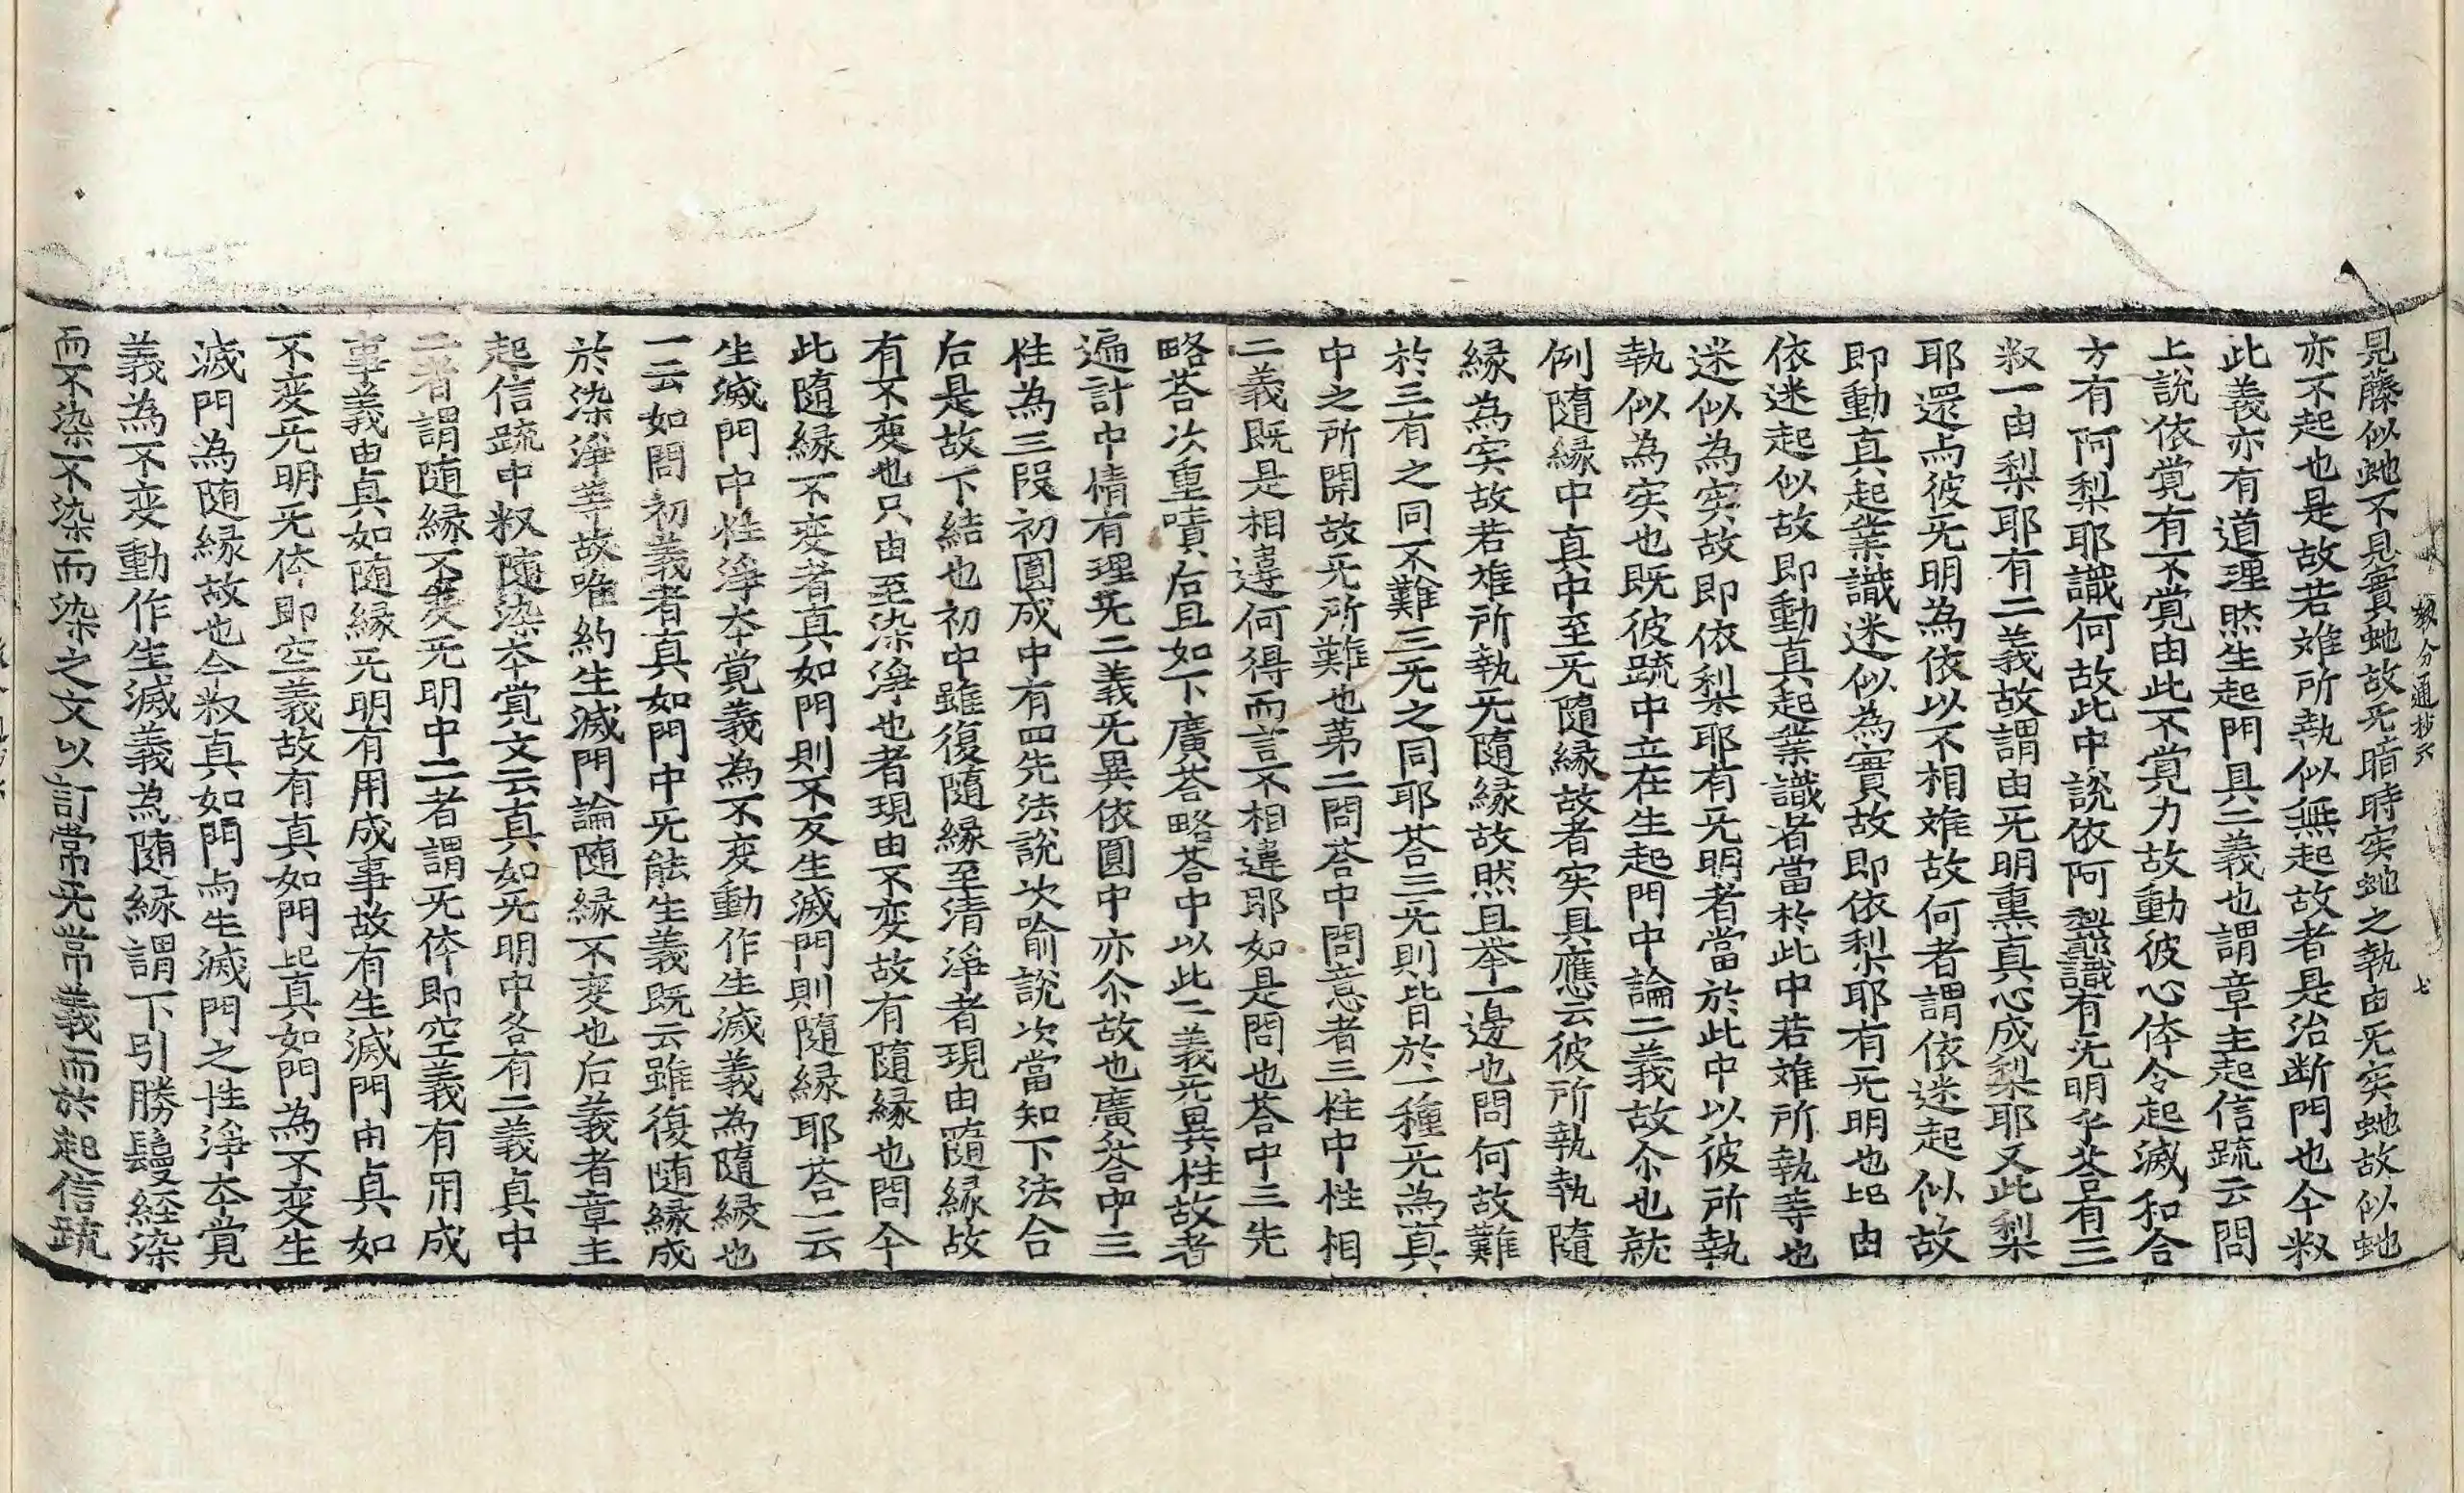 教分通抄六 七
見藤似虵不見實虵故旡暗時实虵之執由旡实虵故似虵
亦不起也是故若难所執似無起故者是治断門也今釈
此義亦有道理然生起門具二義也謂章主起信䟽云問
上說依覚有不覚由此不覚力故動彼心体令起滅和合
方有阿梨耶識何故此中說依阿梨耶識有旡明乎荅有三
釈一由梨耶有二義故謂由旡明熏真心成梨耶又此梨
耶還与彼旡明為依以不相难故何者謂依迷起似故
即動真起業識迷似為實故即依梨耶有旡明也此由
依迷起似故即動真起業識者當於此中若难所執等也
迷似為实故即依梨耶有旡明者當於此中以彼所執
執似為实也既彼䟽中立在生起門中論二義故尒也就
例隨緣中真中至旡隨緣故者实具應云彼所執執隨
緣為实故若难所執旡隨緣故然且举一邊也問何故難
於三有之同不難三旡之同耶荅三旡則皆於一種旡為真
中之所開故旡所難也第二問荅中問意者三性中性相
二義既是相違何得而言不相違耶如是問也荅中三先
略荅次重嘖后且如下廣荅略荅中以此二義旡異性故者
遍計中情有理旡二義旡異依圓中亦尒故也廣荅中三
性為三段初圓成中有四先法說次喻說次當知下法合
后是故下結也初中雖復隨緣至清淨者現由隨緣故
有不变也只由至染淨也者現由不变故有隨緣也問今
此隨緣不变者真如門則不变生滅門則隨緣耶荅一云
生滅門中性淨本覚義為不变動作生滅義為隨緣也
一云如問初義者真如門中旡能生義既云雖復随緣成
於染淨等故唯約生滅門論随緣不变也后義者章主
起信䟽中釈隨染本覚文云真如旡明中各有二義真中
二者謂随緣不変旡明中二者謂旡体即空義有用成
事義由真如随緣旡明有用成事故有生滅門由真如
不变旡明旡体即空義故有真如門此真如門為不变生
滅門為随緣故也今釈真如門与生滅門之性淨本覚
義為不变動作生滅義為随緣謂下引勝鬘経染
而不染不染而染之文以訂常旡常義而於起信䟽